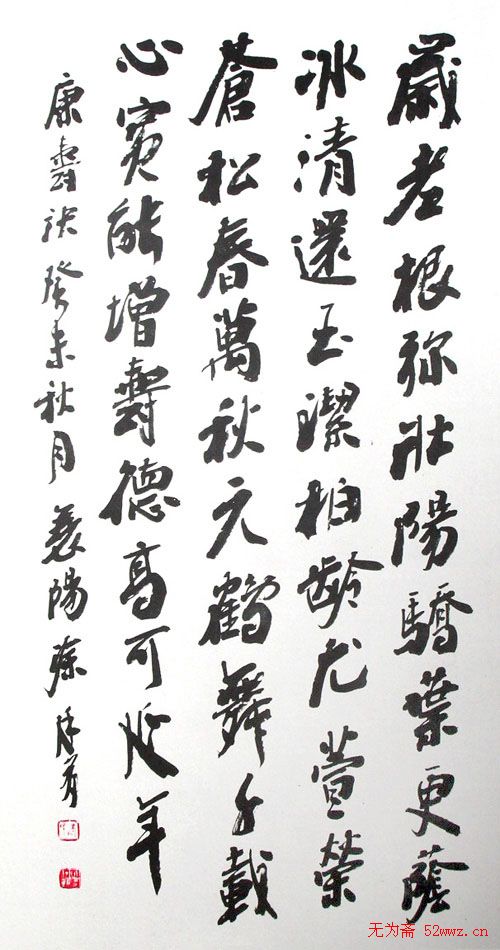 歲老根弥壯陽驕葉更蔭
冰清還玉潔柏齡尤萱榮
蒼松春萬秋元鶴舞千載
心寬能增壽德高可延年
康壽訣癸未秋月襄陽
无为斋 52wwz.cn